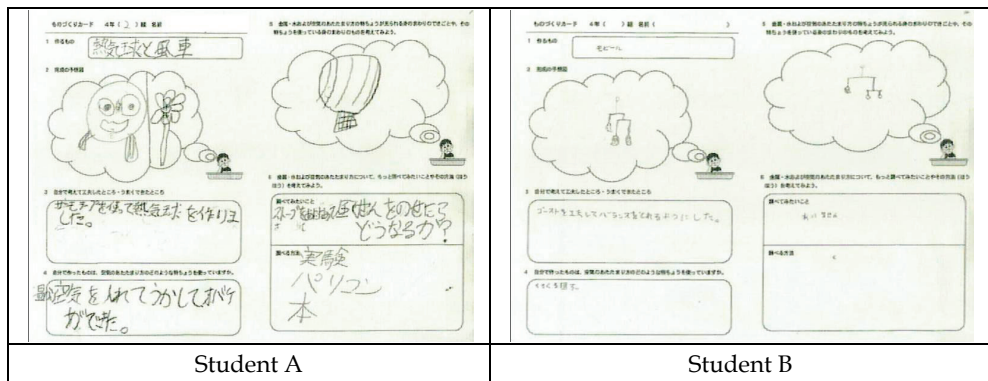 ものづくりカード 4年( 2 )組 名前
1 作るもの
熱気球と風車
2 完成の予想図
3 自分で考えて工夫したところ・うまくできたところ
サーモテープを使って熱気球を作りました。
4 自分で作ったものは、空気のあたたまり方のどのような特ちょうを使っていますか。
空気を入れてうかしてオバケ
ができた。
5 金属・水および空気のあたたまり方の特ちょうが見られる身のまわりのできごとや、その
特ちょうを使っている身のまわりのものを考えてみよう。
6 金属・水および空気のあたたまり方について、もっと調べてみたいことやその方法(ほう
ほう)を考えてみよう。
調べてみたいこと
風せんをのせたら
どうなるか?
調べる方法
実験
パソコン
本
Student A
ものづくりカード 4年( )組 名前( )
1 作るもの
モビール
2 完成の予想図
3 自分で考えて工夫したところ・うまくできたところ
ゴーストを工夫してバランスをとれるようにした。
4 自分で作ったものは、空気のあたたまり方のどのような特ちょうを使っていますか。
5 金属・水および空気のあたたまり方の特ちょうが見られる身のまわりのできごとや、その
特ちょうを使っている身のまわりのものを考えてみよう。
6 金属・水および空気のあたたまり方について、もっと調べてみたいことやその方法(ほう
ほう)を考えてみよう。
調べてみたいこと
調べる方法
Student B